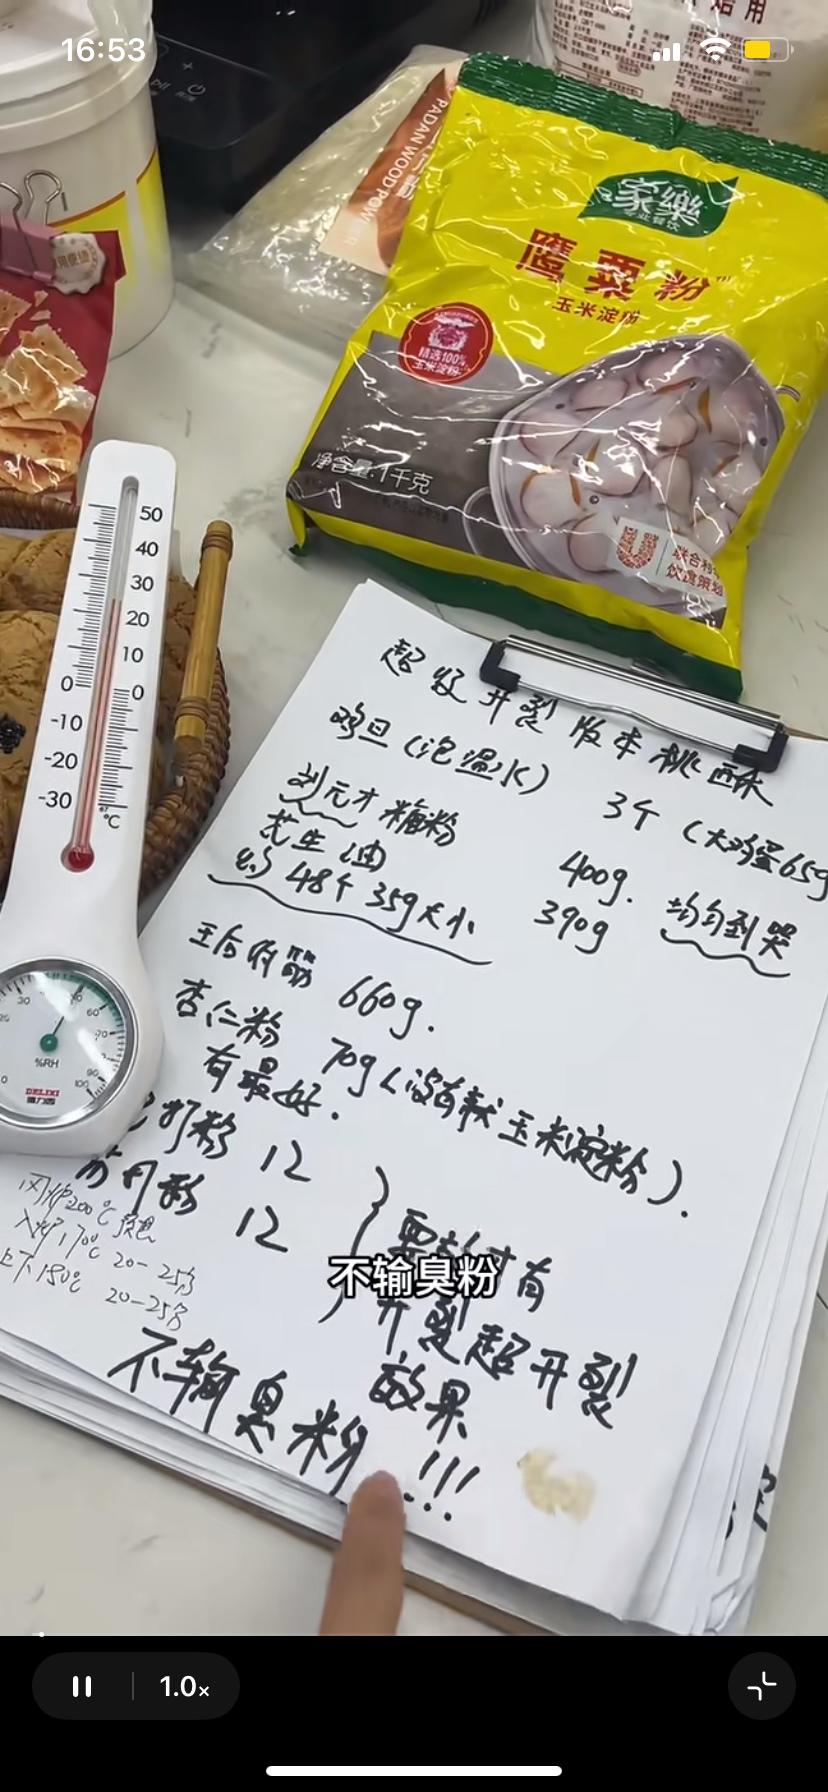 16:53
用
PADAN WOOD POW
家樂
专业餐饮
鹰粟粉
玉米淀粉
精选100%
玉米淀粉
净含量:1千克
饮食策划
50
40
30
20
10
0
0
-10
-20
-30
°C
%RH
DELIXI
德力西
超级开裂版本桃酥
鸡旦(泡温水) 3个(大鸡蛋65g
刘元才糖粉 400g. 均匀到哭
花生油 390g
48个35g大小
王后低筋 660g.
杏仁粉 70g(没有就玉米淀粉).
有最好.
打粉 12
12
开裂超开裂
效果
不输臭粉!!!
200℃预热
170℃ 20-25分
上下150℃ 20-25分
不输臭粉
1.0×